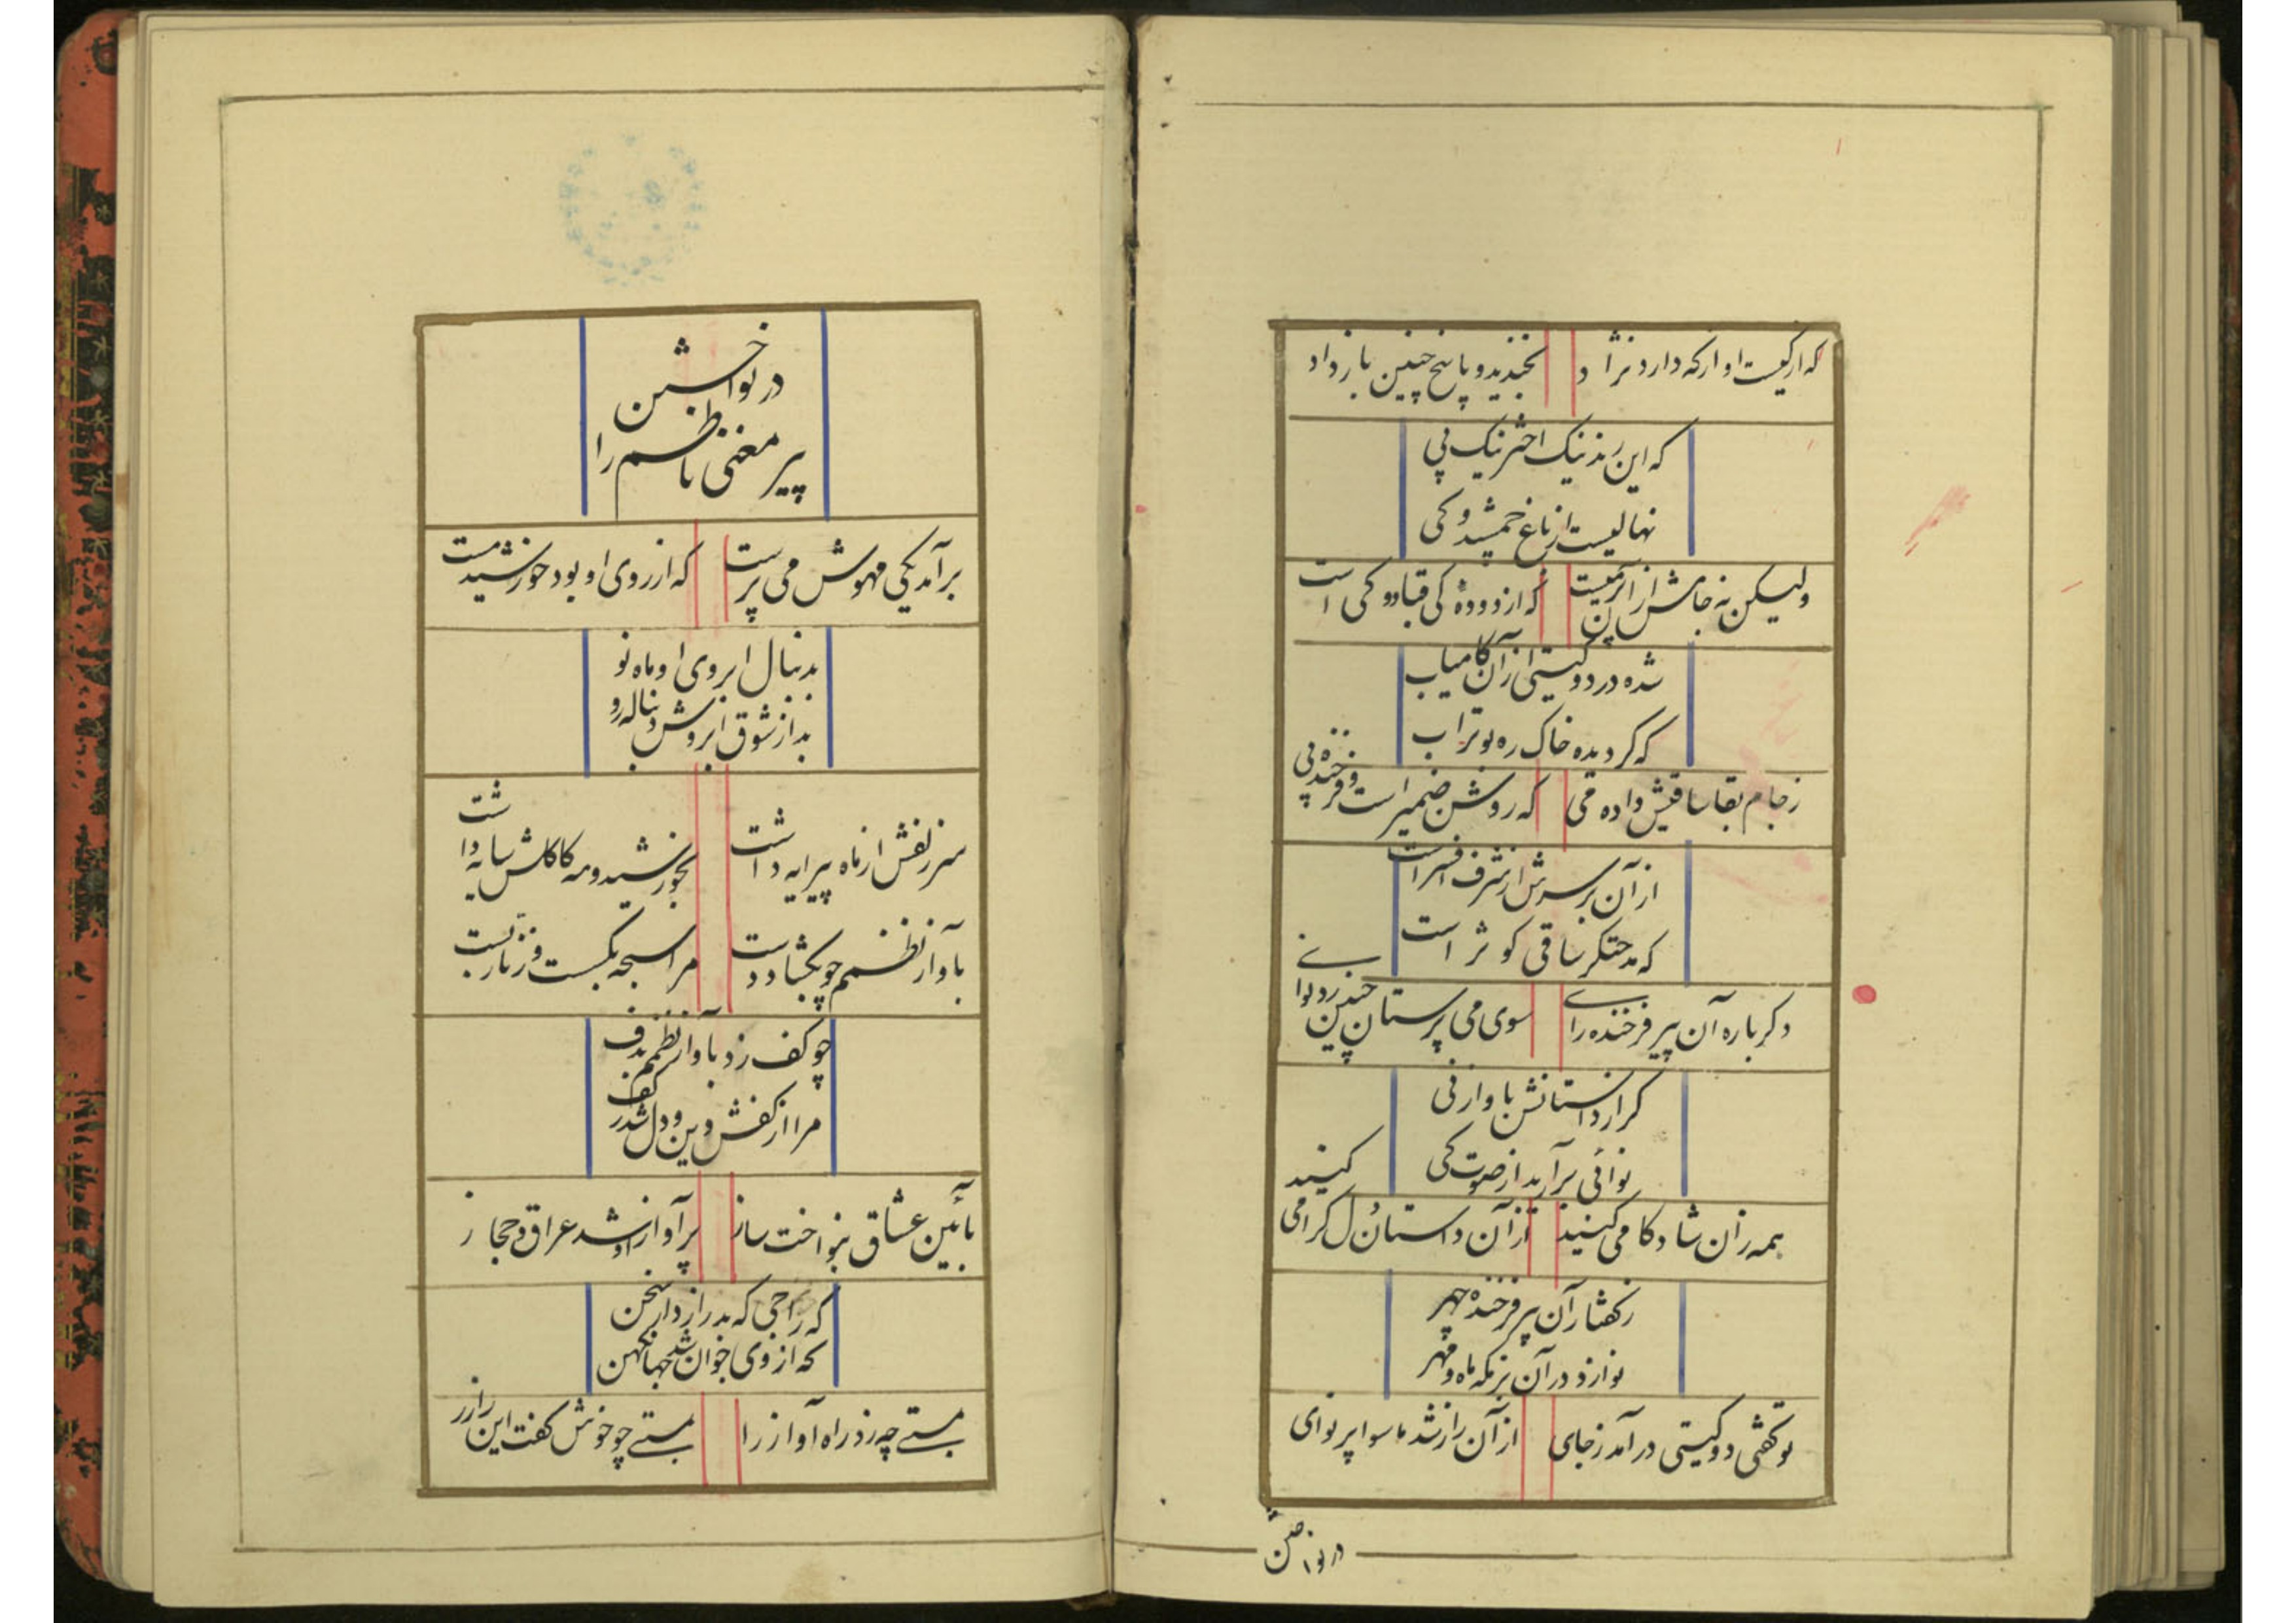 که از کیست او از که دارد نژاد
بخندید و پاسخ چنین باز داد
که این رند نیک اختر نیک پی
نهالیست از باغ جمشید و کی
ولیکن نه جامش از
که از دوده کی قباد و کی است
شده در دو گیتی از آن کامیاب
که گردیده خاک ره بوتراب
ز جام بقا ساقیش داده می
که روشن ضمیر است و فرخنده پی
از آن بر سرش از شرف افسر است
که مدحتگر ساقی کوثر است
دگر باره آن پیر فرخنده رای
سوی می پرستان چنین زد نوای
کز داستانش باواز نی
نوائی برآرید از صوت کی
همه زان شادکامی کنید
از آن داستان گرامی کنید
ز گفتار آن پیر فرخنده چهر
نوازد در آن بزمگه ماه و مهر
تو گفتی دو گیتی درآمد ز جای
از آن راز شد ماسوا پر نوای
در نواختن
در نواختن
پیر مغنی ناظم را
برآمد یکی مهوش می پرست
که از روی او بود خورشید مست
بدنبال ابروی او ماه نو
بد از شوق ابروش دنباله رو
سر زلفش از ماه پیرایه داشت
بخورشید و مه کاکلش سایه داشت
باواز نظمم چو بگشاد دست
مرا سبحه بگسست و زنار بست
چو کف زد باواز نظمم بدف
مرا از کفش دین و دل شد ز کف
بآئین عشاق بنواخت ساز
پر آواز او شد عراق و حجاز
که راجی که بد رازدار سخن
که از وی جوان شد جهان کهن
بمستی چه زد راه آواز را
بمستی چو خوش گفت این راز را